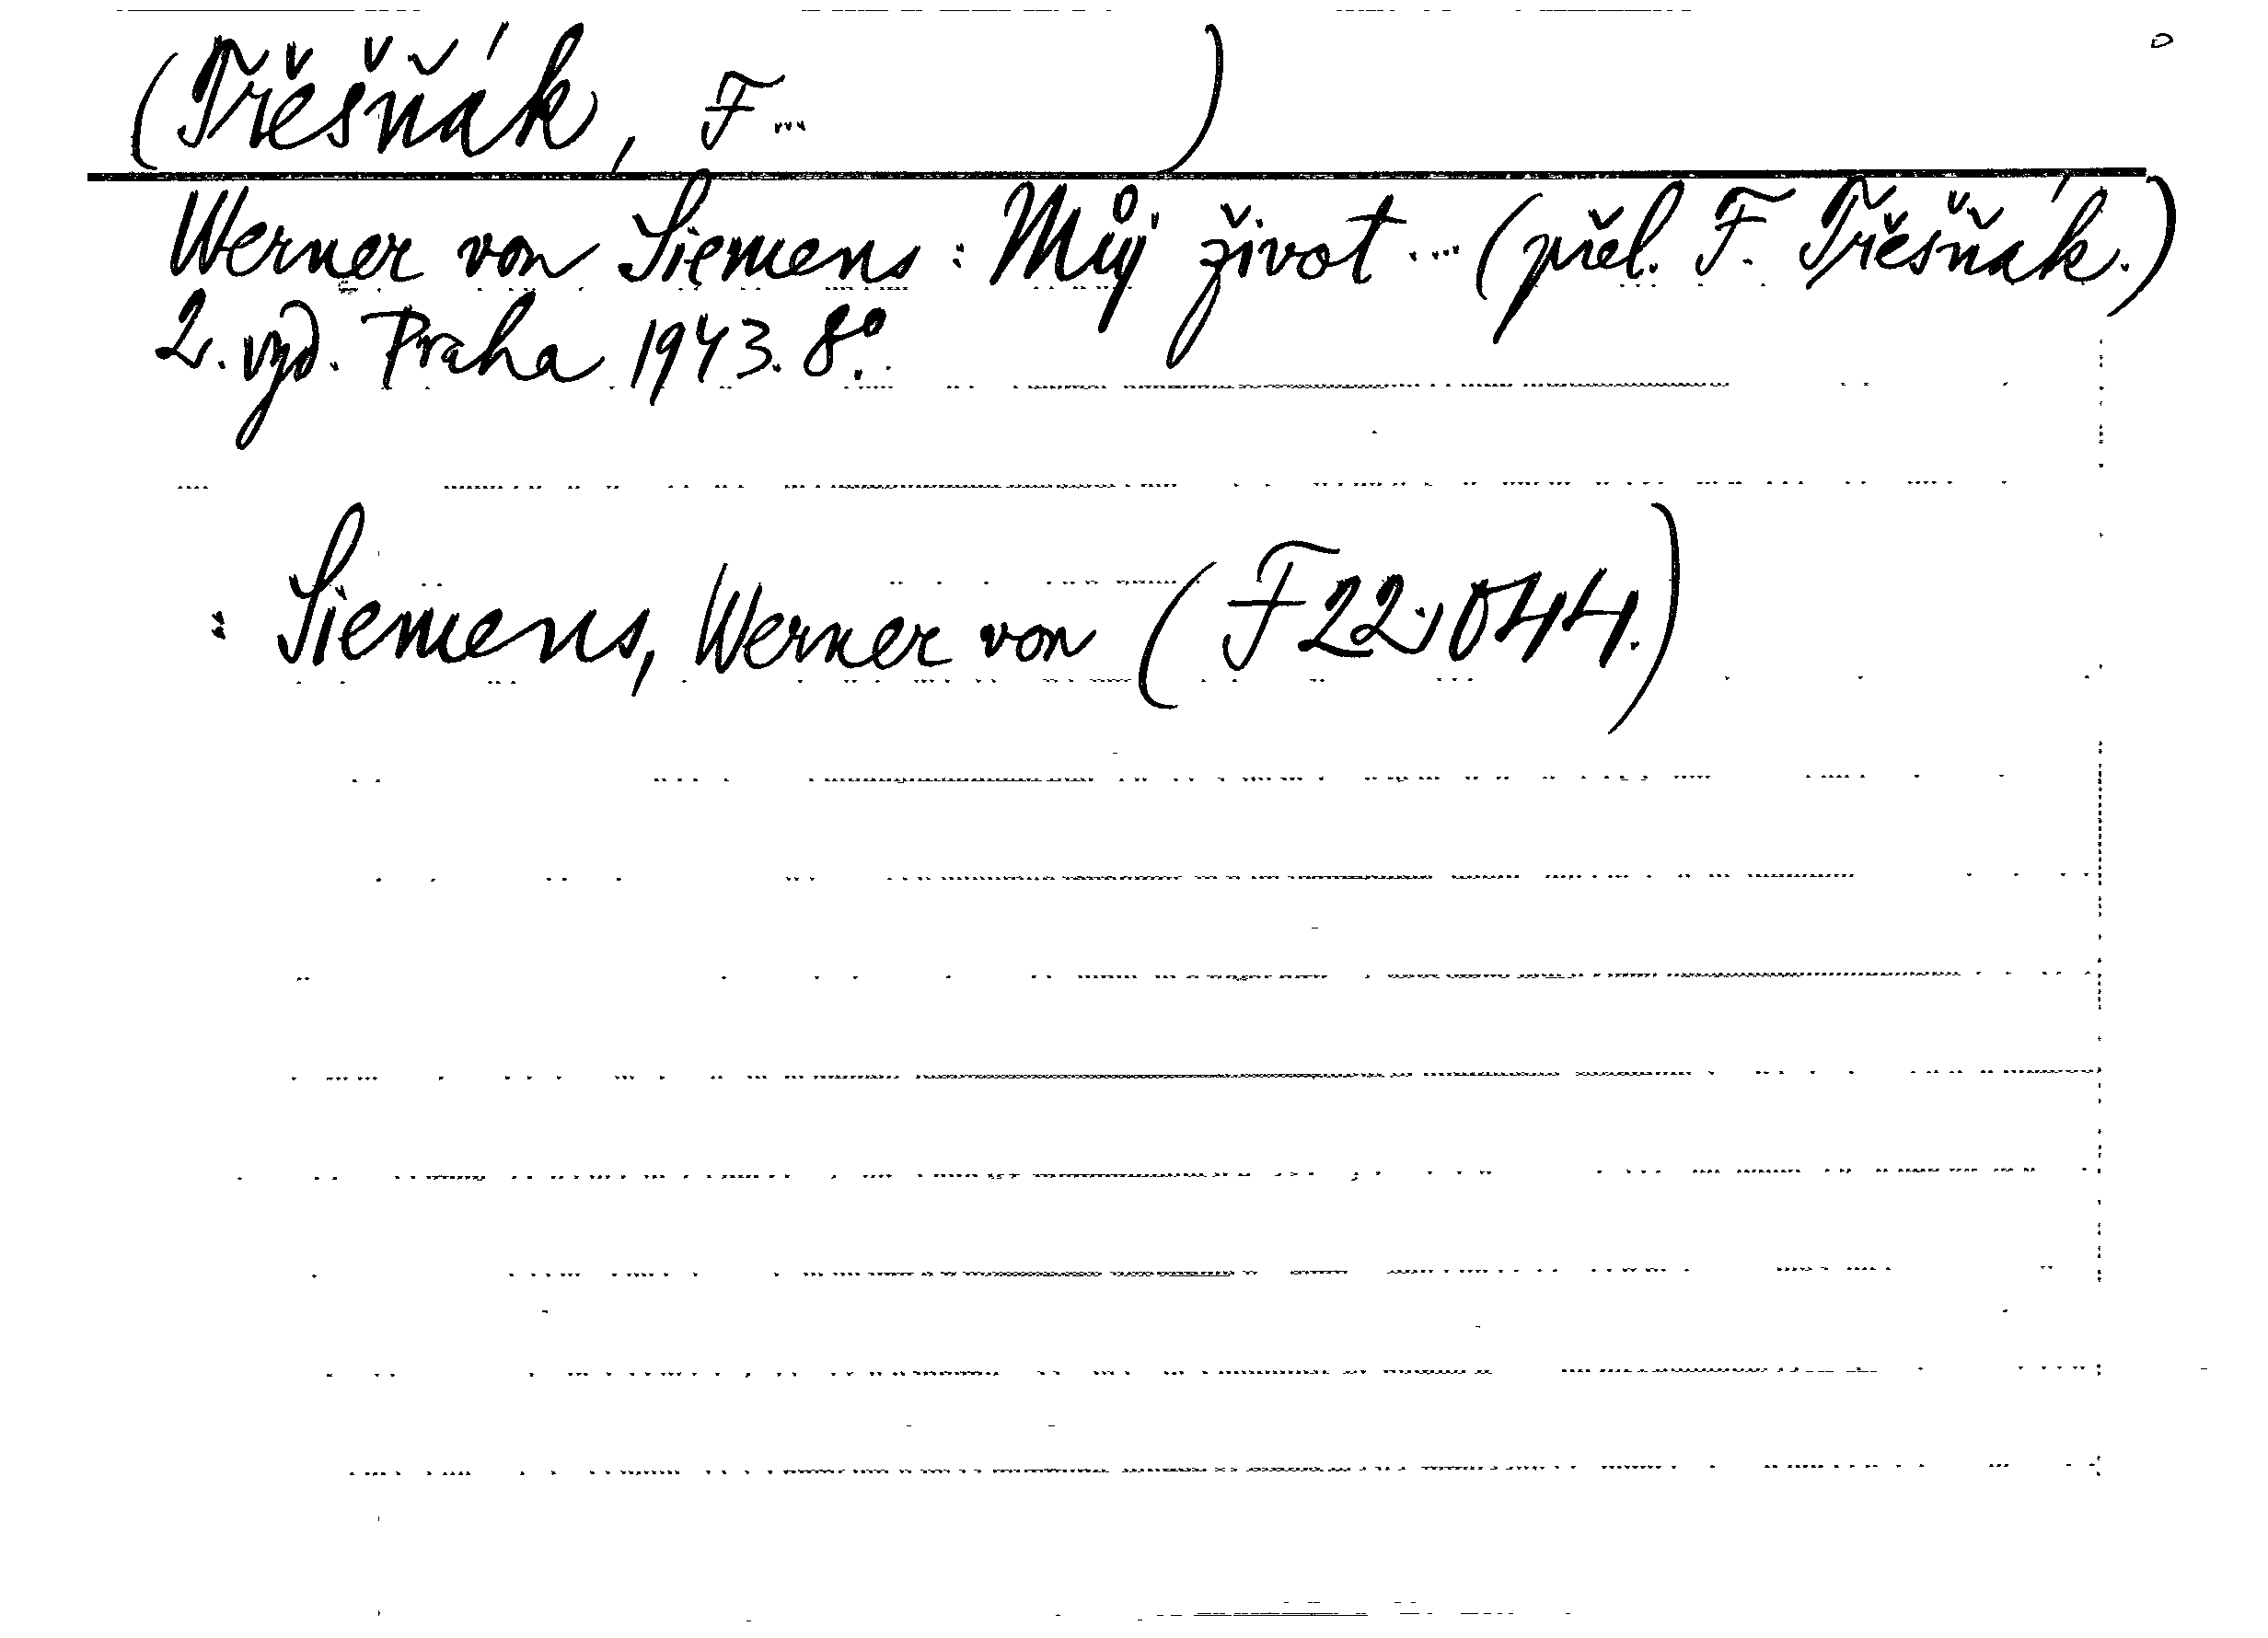 (Třěšňák, F... )
Werner von Siemens: Můj život ... (přel. F. Třěšňák.)
2. vyd. Praha 1943. 8°.
: Siemens, Werner von (F 22.044.)